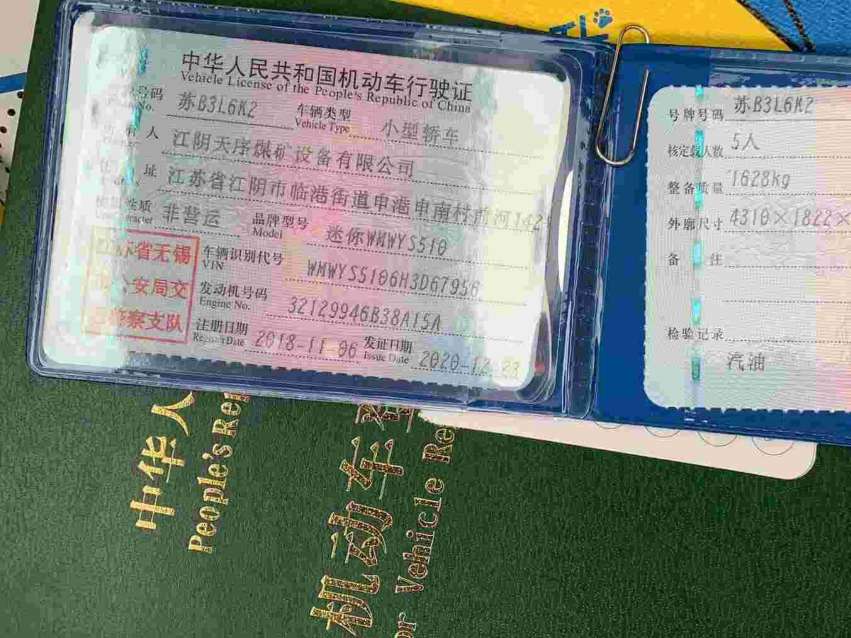 中华人民共和国机动车行驶证
Vehicle License of the People's Republic of China
号码 苏B3L6K2 车辆类型 小型轿车
No. Vehicle Type
人 江阴天序煤矿设备有限公司
址 江苏省江阴市临港街道申港申南村前河142
性质 非营运 品牌型号 迷你WMWYS510
Model
江苏省无锡
市公安局交
通警察支队
车辆识别代号 WMWYS5106H3D67956
VIN
发动机号码 32129946B38A15A
Engine No.
注册日期 2018-11-06 发证日期 2020-12-23
Register Date Issue Date
号牌号码 苏B3L6K2
核定载人数 5人
整备质量 1628kg
外廓尺寸 4310×1822×
备 注
检验记录
汽油
中华人
People's Re
机动车登
or Vehicle Re